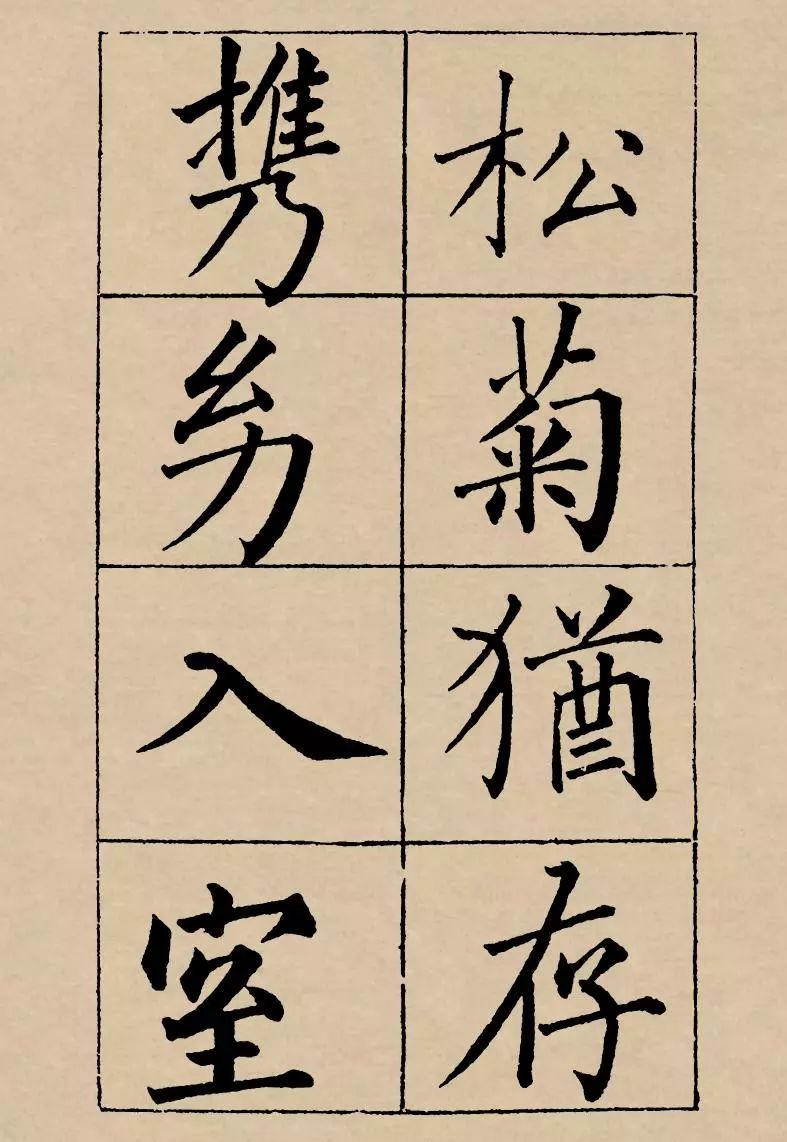 松菊猶存
携幼入室